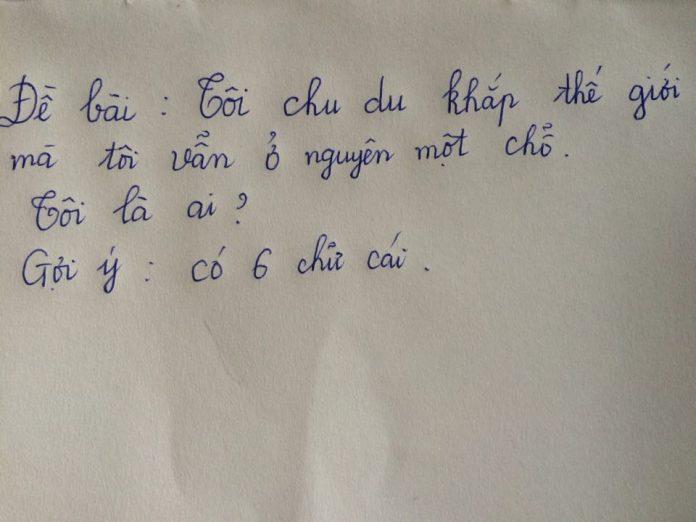 Đề bài : Tôi chu du khắp thế giới
mà tôi vẫn ở nguyên một chỗ.
Tôi là ai ?
Gợi ý : có 6 chữ cái .